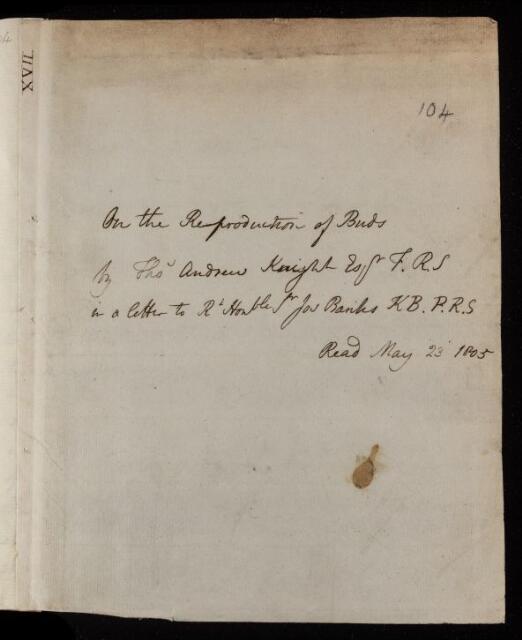 04
XVII
104
On the Reproduction of Buds
by Thos Andrew Knight Esqr F.R.S
in a letter to Rt Honble Sr Jos Banks KB. P.R.S
Read May 23 1805